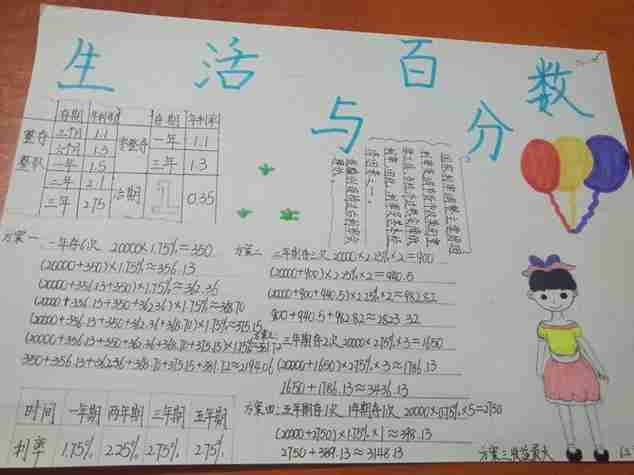 生活百分数
与
存期 年利率 存期 年利率
整存 三个月 1.1 零整存 一年 1.1
整取 六个月 1.3 三年 1.3
一年 1.5
二年 2.1 活期 0.35
三年 2.75
方案一 一年存6次 20000×1.75%=350
(20000+350)×1.75%≈356.13
(20000+356.13+350)×1.75%≈362.36
(20000+356.13+350+362.36)×1.75%≈368.70
(20000+356.13+350+362.36+368.70)×1.75%≈375.15
(20000+356.13+350+362.36+368.70+375.15)×1.75%≈381.72
350+356.13+362.36+368.70+375.15+381.72≈2194.06
方案二 二年期存2次 20000×2.25%×2=900
(20000+900)×2.25%×2=940.5
(20000+900+940.5)×2.25%×2≈982.82
900+940.5+982.82≈2823.32
方案三 三年期存2次 20000×2.75%×3=1650
(20000+1650)×2.75%×3≈1786.13
1650+1786.13≈3436.13
方案四:五年期存1次 1年期存1次 20000×2.75%×5=2750
(20000+2750)×1.75%×1≈398.13
2750+389.13≈3148.13
时间 一年期 两年期 三年期 五年期
利率 1.75% 2.25% 2.75% 2.75%
方案三收益最大